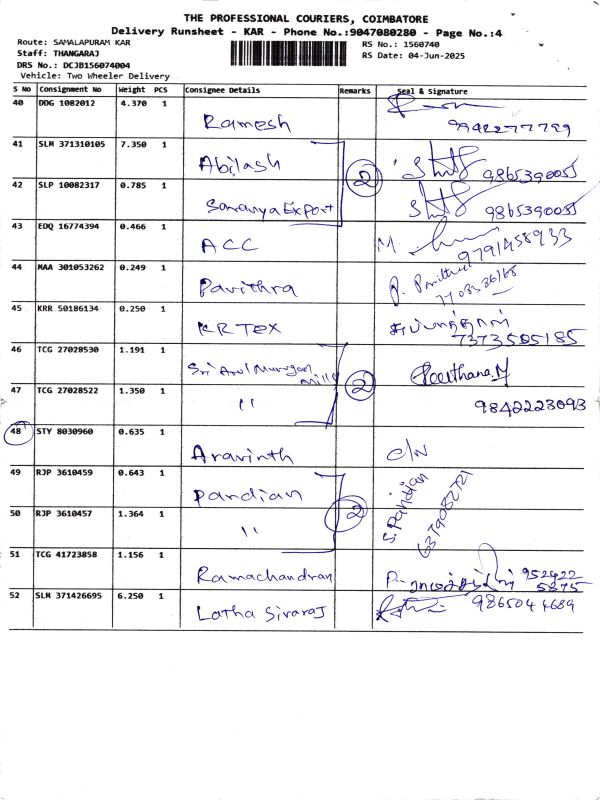 THE PROFESSIONAL COURIERS, COIMBATORE
Delivery Runsheet - KAR - Phone No.:9047080280 - Page No.:4
Route: SAMALAPURAM KAR
RS No.: 1560740
Staff: THANGARAJ
RS Date: 04-Jun-2025
DRS No.: DCJB156074004
Vehicle: Two Wheeler Delivery
S No Consignment No Weight PCS Consignee Details Remarks Seal & Signature
40 DDG 1082012 4.370 1
Ramesh 9942277799
41 SLM 371310105 7.350 1
Abilash 2 9865390055
42 SLP 10082317 0.785 1
Saranya Export 9865390055
43 EDQ 16774394 0.466 1
ACC M 9791458933
44 MAA 301053262 0.249 1
Pavithra P. Pavithra
45 KRR 50186134 0.250 1
KR TEX சுப்பாத்தாள்
7373505185
46 TCG 27028530 1.191 1
Sri Arul Murugan Mills 2
47 TCG 27028522 1.350 1
" 9842223093
48 STY 8030960 0.635 1
Aravinth C/N
49 RJP 3610459 0.643 1
Pandian 2 S. Pandian
6379082721
50 RJP 3610457 1.364 1
"
51 TCG 41723858 1.156 1
Ramachandran 952422
5875
52 SLM 371426695 6.250 1
Latha Sivaraj 986504 4689